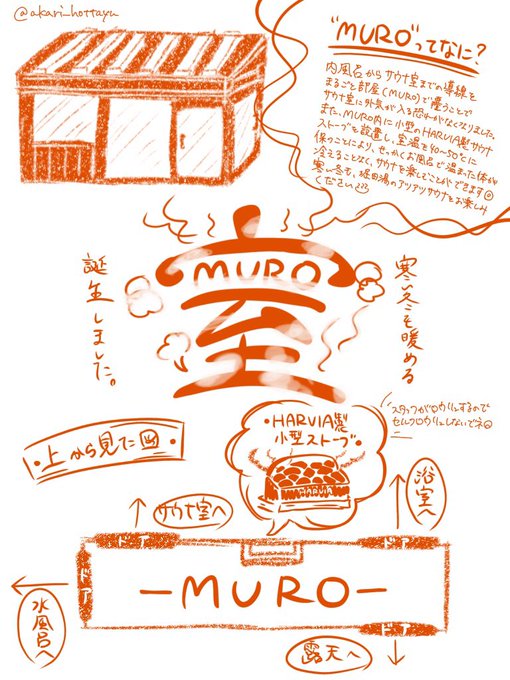 @akari_hottayu
"MURO"ってなに?
内風呂からサウナ室までの導線を
まるごと部屋(MURO)で覆うことで
サウナ室に外気が入る恐れがなくなりました。
また、MURO内に小型のHARVIA製サウナ
ストーブを設置し、室温を40~50℃に
保つことにより、せっかくお風呂で温まった体が
冷えることなく、サウナを楽しむことができます
寒い冬も、堀田湯のアツアツサウナをお楽しみ
ください
寒い冬も暖める
室
MURO
誕生しました。
スタッフがロウリュするので
セルフロウリュしないでネ
・HARVIA製
小型ストーブ・
HARVIA
・上から見た図・
サウナ室へ
浴室へ
ドア
ドア
ドア
-MURO-
水風呂へ
露天へ